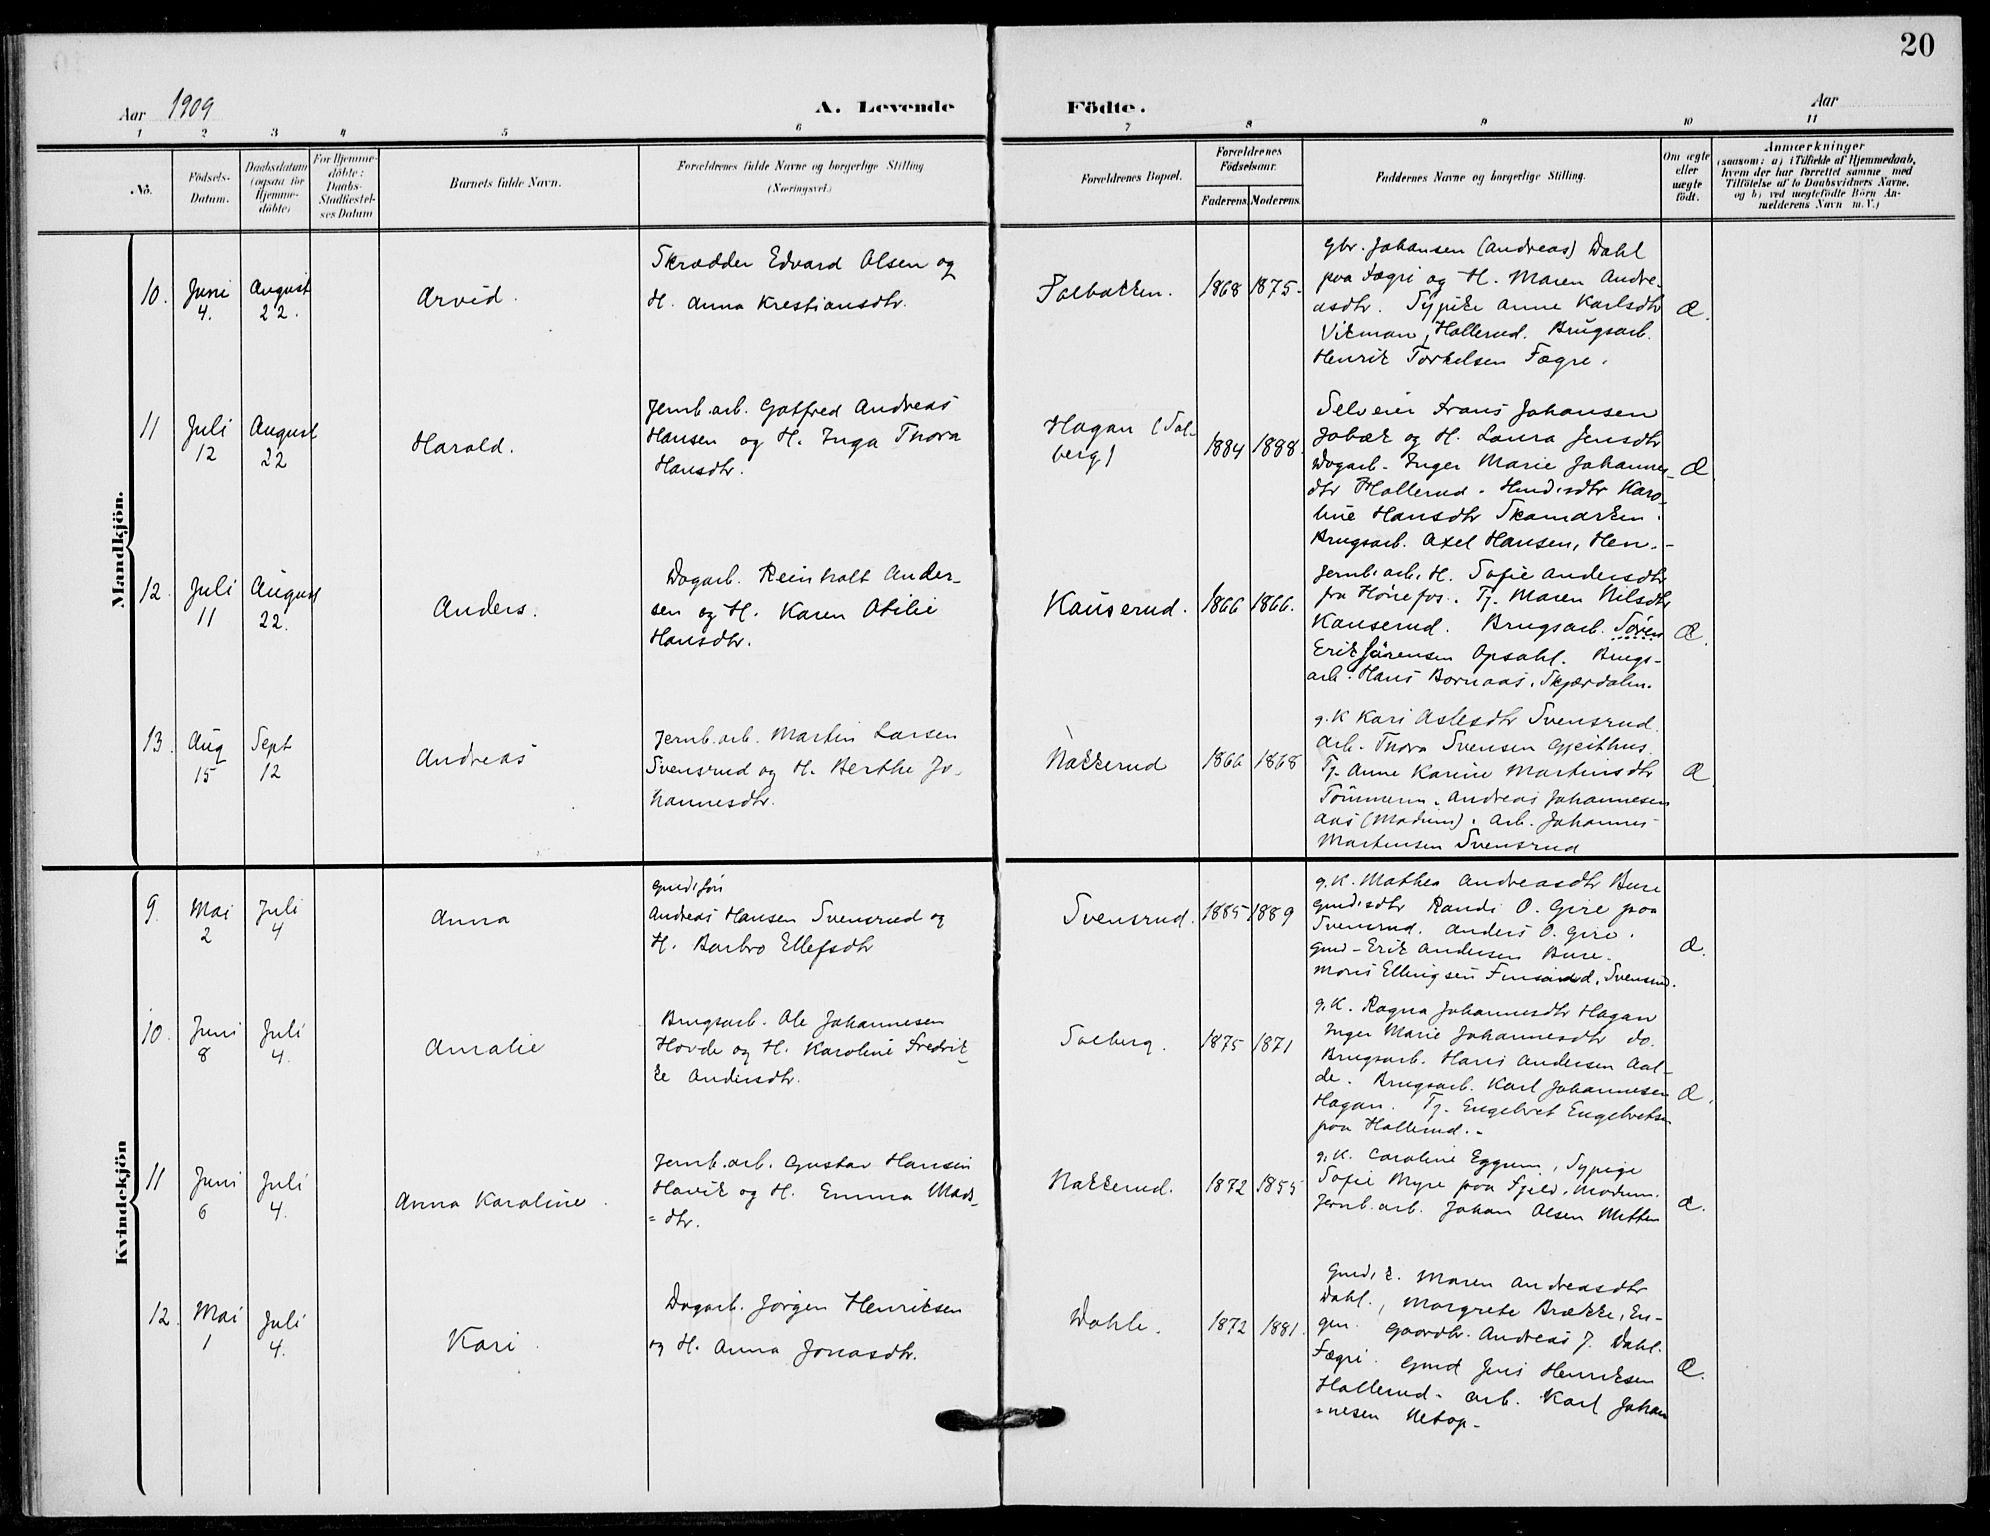 20
Aar 1909
A. Levende Födte.
Aar
1 2 3 4 5 6 7 8 9 10 11
No.
Födsels-
Datum.
Daabsdatum
(ogsaa for
Hjemme-
döbte)
For Hjemme-
döbte:
Daabs-
Stadfæstel-
ses Datum
Barnets fulde Navn.
Forældrenes fulde Navne og borgerlige Stilling
(Næringsvei.)
Forældrenes Bopæl.
Forældrenes
Födselsaar.
Faderens. Moderens.
Faddernes Navne og borgerlige Stilling.
Om ægte
eller
uægte
født.
Anmærkninger
(saasom: a) i Tilfælde af Hjemmedaab,
hvem der har forrettet samme med
Tilföielse af to Daabsvidners Navne,
og b) ved uægtefödte Börn An-
melderens Navn m. V.)
Mandkjön.
10.
Juni
4.
August
22.
Arvid.
Skrædder Edvard Olsen og
H. Anna Krestiansdtr.
Solbakken.
1868 1875.
Gbr. Johansen (Andreas) Dahl
paa Fægri og H. Maren Andre-
asdtr. Sypike Anne Karlsdtr
Vikman, Hollerud. Brugsarb.
Henrik Torkelsen Fægre.
Æ.
11
Juli
12
August
22
Harald.
Jernb.arb. Gotfred Andreas
Hansen og H. Inga Thora
Hansdtr.
Hagan (Sol-
berg)
1884 1888.
Selveier Frans Johansen
Jobæk og H. Laura Jensdtr
Dagarb. Inger Marie Johannes-
dtr Hollerud. Husm.dtr Karo-
line Hansdtr Skamarken.
Brugsarb. Axel Hansen, Hen.-
Æ.
12.
Juli
11
August
22.
Anders.
Dagarb. Reinholt Ander-
sen og H. Karen Otilie
Hansdtr.
Kauserud.
1866 1866.
Jernb. arb. H. Sofie Andersdtr
fra Hönefos. Tj. Maren Nilsdtr
Kauserud. Brugsarb. Sören
Erik Sörensen Opsahl. Brugs-
arb. Hans Bornaas, Skjærdalen.
Æ.
13.
Aug
15
Sept
12
Andreas
Jernb.arb. Martin Larsen
Svensrud og H. Berthe Jo-
hannesdtr.
Nakkerud
1866 1868
g.K Kari Aslesdtr Svensrud.
Arb. Thora Svensen Gjeithus.
Tj. Anne Karine Martinsdtr
Tömmerm. Andreas Johannesen
Aas (Modum). Arb. Johannes
Martinsen Svensrud
Æ
Kvindekjön
9.
Mai
2
Juli
4
Anna
Gmds.sön
Andreas Hansen Svensrud og
H. Barbro Ellefsdtr
Svensrud.
1885 1889
g.K. Mathea Andreasdtr Bure
Gmdsdtr Randi O. Gire paa
Svensrud. Anders O. Gire.
Gmd- Erik Andersen Bure.
Mons Ellingsen Finsand, Svensrud.
Æ.
10.
Juni
8
Juli
4.
Amalie
Brugsarb. Ole Johannesen
Hovde og H. Karoline Fredrik-
ke Andersdtr.
Solberg.
1875 1871
g.K. Ragna Johannesdtr Hagan
Inger Marie Johannesdtr do.
Brugsarb. Hans Andersen Aal-
de. Brugsarb. Karl Johannesen
Hagan. Tj. Engebret Engebretsen
paa Hollerud.-
Æ.
11
Juni
6
Juli
4.
Anna Karoline.
Jernb.arb. Gustav Hansen
Havik og H. Emma Mads-
=dtr.
Nakkerud.
1872 1855
g.K. Caroline Eggum, Sypige
Sofie Myre paa Fjeld, Modum.
Jernb. arb. Johan Olsen Metten
Æ.
12.
Mai
1
Juli
4.
Kari.
Dagarb. Jörgen Henriksen
og H. Anna Jonasdtr.
Dahle.
1872 1881.
Gmds k. Maren Andreasdtr
Dahl., Margrete Brække, En-
gen. Gaardbr. Andreas J. Dahl.
Fægri. Gmd Jens Henriksen
Hollerud. Arb. Karl Johan
=nesen Netop-
Æ.